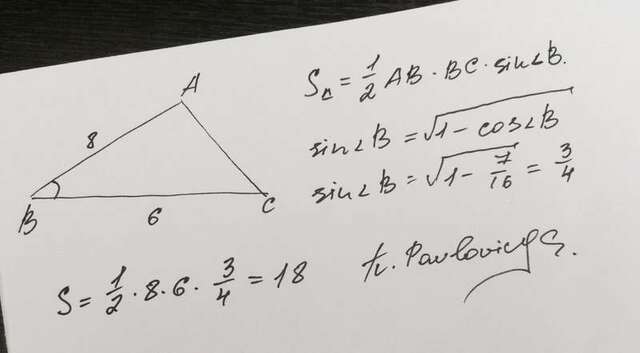 A
8
B
6
C
S△ = 1/2 AB · BC · sin∠B.
sin∠B = √(1 - cos∠B)
sin∠B = √(1 - 7/16) = 3/4
S = 1/2 · 8 · 6 · 3/4 = 18
tr. Pavlovich S.